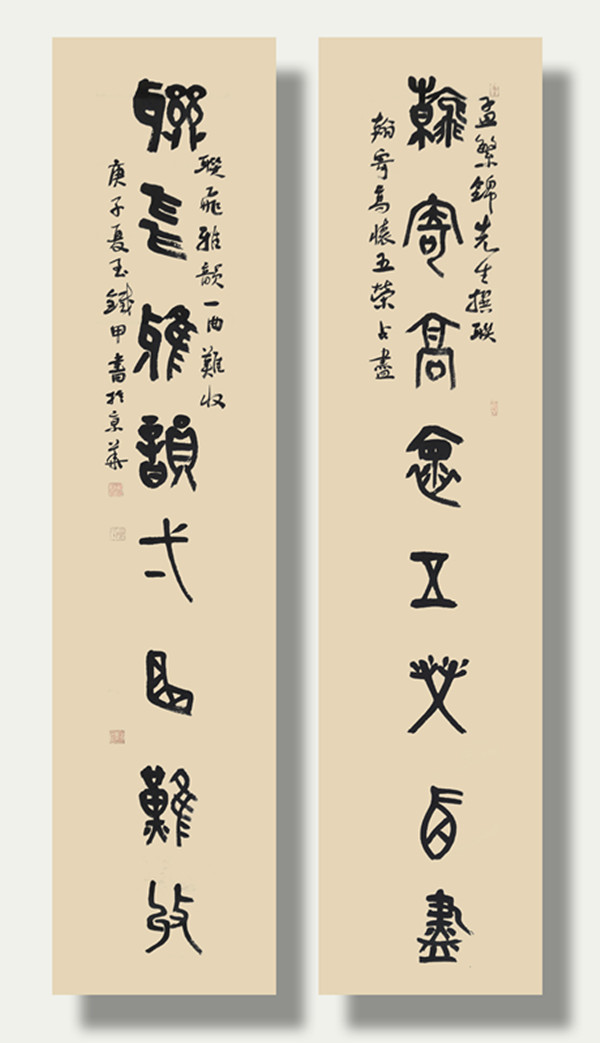 孟繁錦先生撰聯
翰寄高懷五榮占盡
翰寄高懷五榮占盡
聯飛雅韻一曲難收
聯飛雅韻弌曲難收
庚子夏至鐵甲書於京華